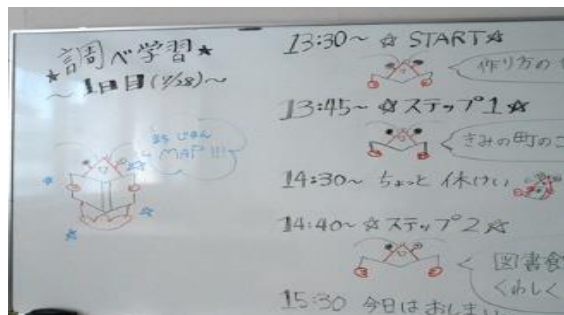 ★調べ学習★
～1日目(7/28)～
まちじまん
MAP!!!
13:30～ ☆ START☆
作り方の
13:45～ ☆ステップ1☆
きみの町のこ
14:30～ ちょっと休けい
14:40～☆ステップ2☆
図書館
くわしく
15:30 今日はおしまい